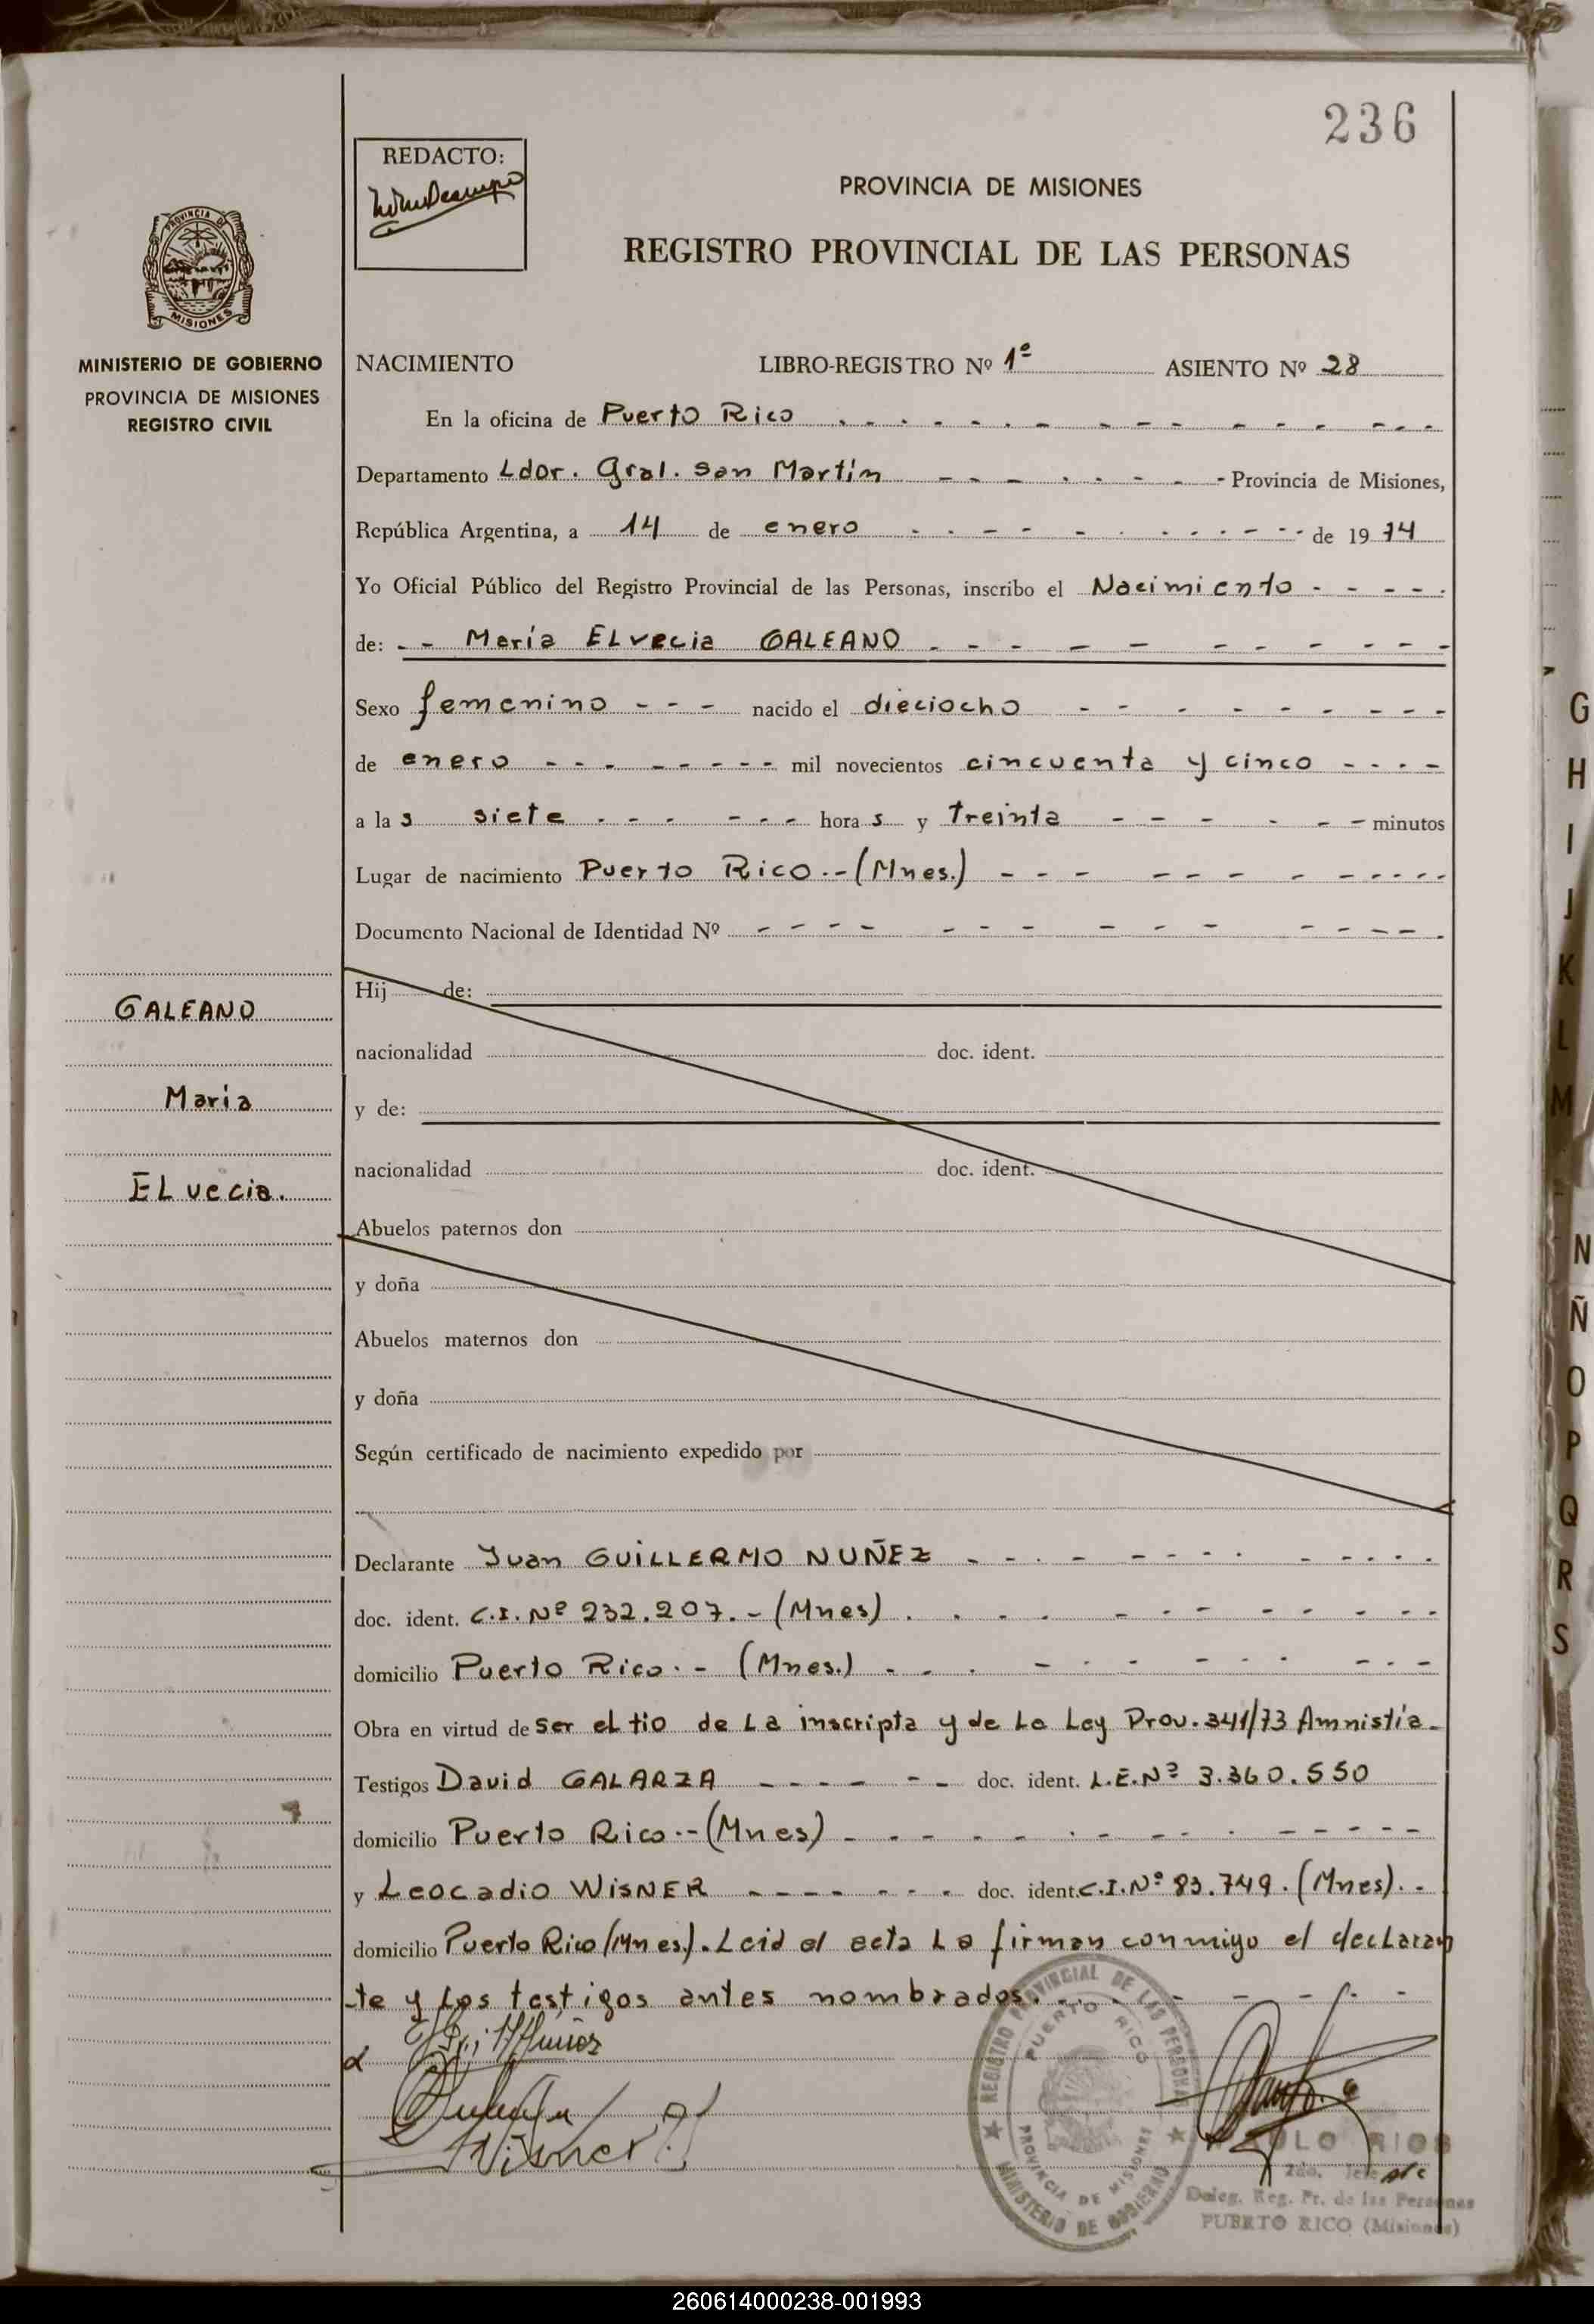 236
REDACTO:
PROVINCIA DE MISIONES
REGISTRO PROVINCIAL DE LAS PERSONAS
PROVINCIA DE
MISIONES
MINISTERIO DE GOBIERNO
PROVINCIA DE MISIONES
REGISTRO CIVIL
NACIMIENTO LIBRO-REGISTRO Nº 1º ASIENTO Nº 28
En la oficina de Puerto Rico
Departamento Ldor. Gral. San Martín - Provincia de Misiones,
República Argentina, a 14 de enero de 1974
Yo Oficial Público del Registro Provincial de las Personas, inscribo el Nacimiento
de: María ELvecia GALEANO
Sexo femenino nacido el dieciocho
de enero mil novecientos cincuenta y cinco
a las siete horas y treinta minutos
Lugar de nacimiento Puerto Rico.-(Mnes.)
Documento Nacional de Identidad Nº
Hij de:
GALEANO
nacionalidad doc. ident.
María
y de:
nacionalidad doc. ident.
ELvecia.
Abuelos paternos don
y doña
Abuelos maternos don
y doña
Según certificado de nacimiento expedido por
Declarante Juan GUILLERMO NUÑEZ
doc. ident. C.I. Nº 232.207.-(Mnes)
domicilio Puerto Rico.-(Mnes.)
Obra en virtud de ser el tio de La inscripta y de La Ley Prov. 341/73 Amnistía.
Testigos David GALARZA doc. ident. L.E.Nº 3.360.550
domicilio Puerto Rico.-(Mnes)
y Leocadio WISNER doc. ident. C.I.Nº 83.749.(Mnes).
domicilio Puerto Rico (Mnes.). Leid al acta La firman conmigo el declaran
-te y Los testigos antes nombrados.
Wisner
REGISTRO PROVINCIAL DE LAS PERSONAS
PUERTO RICO
PROVINCIA DE MISIONES
MINISTERIO DE GOBIERNO
RIOS
2do. Jefe
Deleg. Reg. Pr. de las Personas
PUERTO RICO (Misiones)
G
H
I
J
K
L
M
N
Ñ
O
P
Q
R
S
260614000238-001993